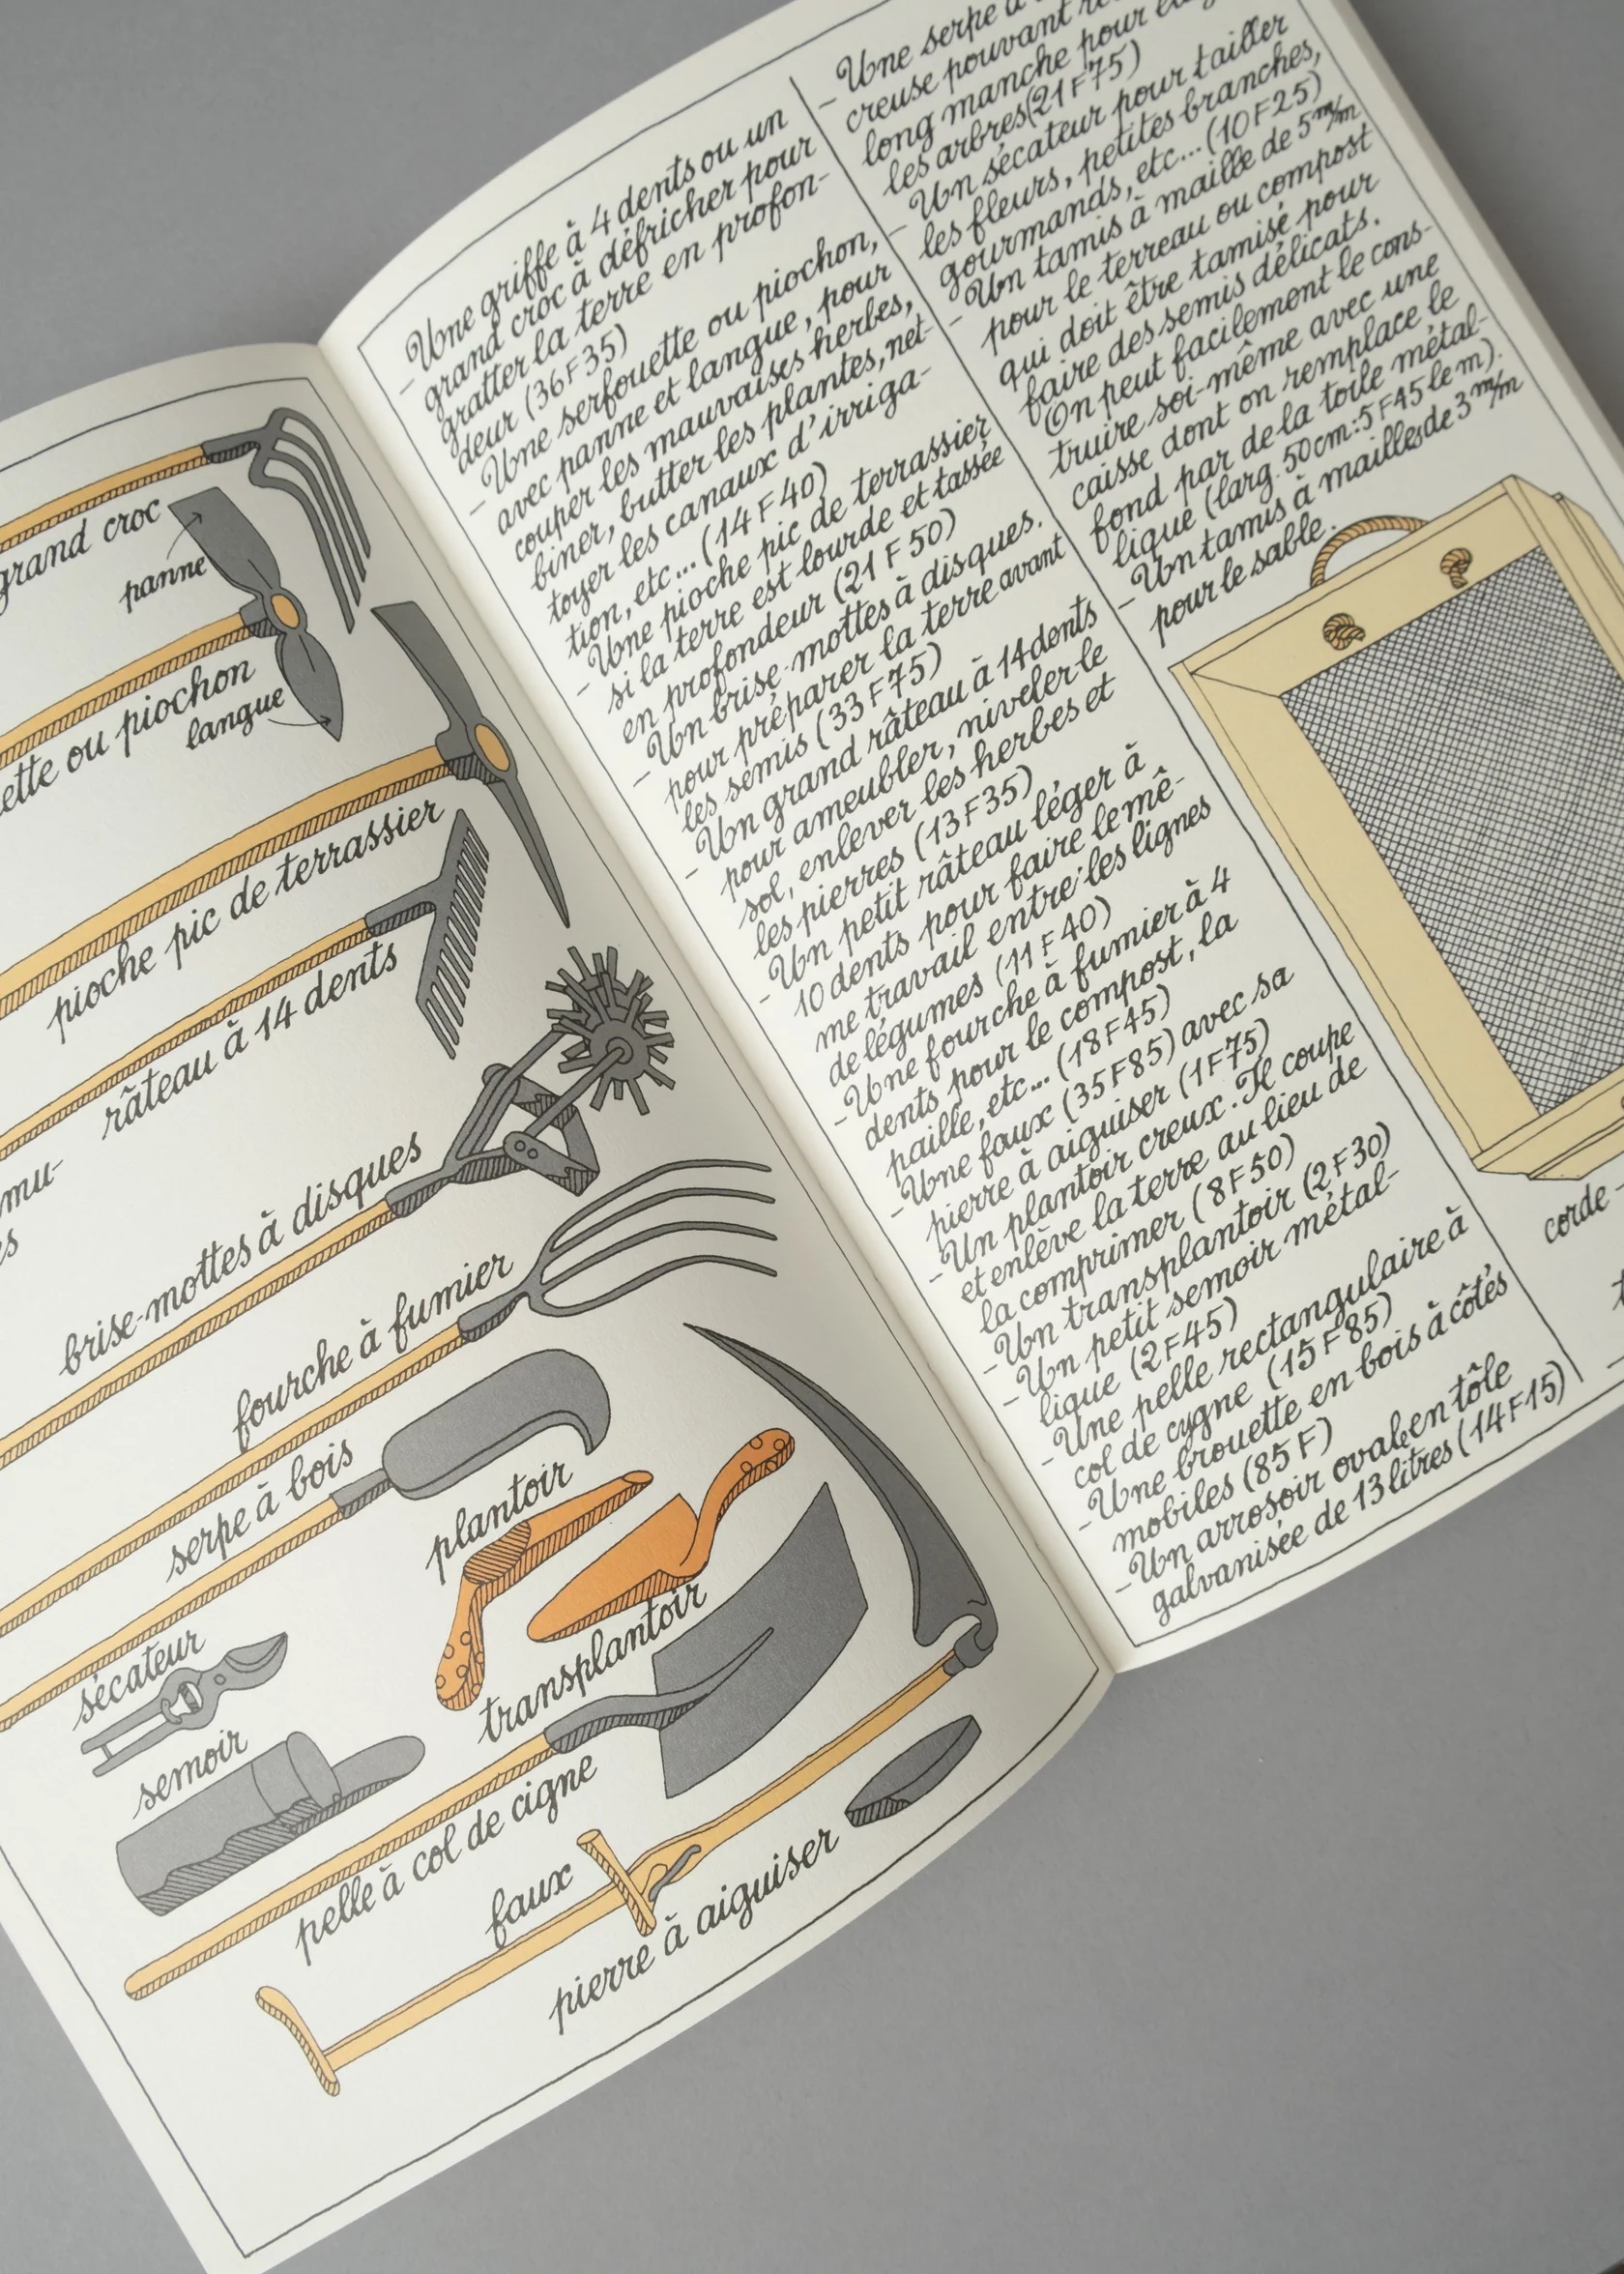 grand croc
panne
ette ou piochon
langue
pioche pic de terrassier
râteau à 14 dents
mu-
es
brise-mottes à disques
fourche à fumier
serpe à bois
plantoir
transplantoir
sécateur
semoir
pelle à col de cigne
faux
pierre à aiguiser
- Une griffe à 4 dents ou un
grand croc à défricher pour
gratter la terre en profon-
deur (36F35)
- Une serfouette ou piochon,
avec panne et langue, pour
couper les mauvaises herbes,
biner, butter les plantes, net-
toyer les canaux d'irriga-
tion, etc... (14F40)
- Une pioche pic de terrassier
si la terre est lourde et tassée
en profondeur (21F50)
- Un brise-mottes à disques.
pour préparer la terre avant
les semis (33F75)
- Un grand râteau à 14 dents
pour ameubler, niveler le
sol, enlever les herbes et
les pierres (13F35)
- Un petit râteau léger à
10 dents pour faire le mê-
me travail entre les lignes
de légumes (11F40)
- Une fourche à fumier à 4
dents pour le compost, la
paille, etc... (18F45)
- Une faux (35F85) avec sa
pierre à aiguiser (1F75)
- Un plantoir creux. Il coupe
et enlève la terre au lieu de
la comprimer (8F50)
- Un transplantoir (2F30)
- Un petit semoir métal-
lique (2F45)
- Une pelle rectangulaire à
col de cygne (15F85)
- Une brouette en bois à côtés
mobiles (85F)
- Un arrosoir ovale en tôle
galvanisée de 13 litres (14F15)
- Une serpe à
creuse pouvant
long manche pour
les arbres (21F75)
- Un sécateur pour tailler
les fleurs, petites branches,
gourmands, etc... (10F25)
- Un tamis à maille de 5 m/m
pour le terreau ou compost
qui doit être tamisé pour
faire des semis délicats.
On peut facilement le cons-
truire soi-même avec une
caisse dont on remplace le
fond par de la toile métal-
lique (larg. 50cm: 5F45 le m).
- Un tamis à mailles de 3 m/m
pour le sable.
corde